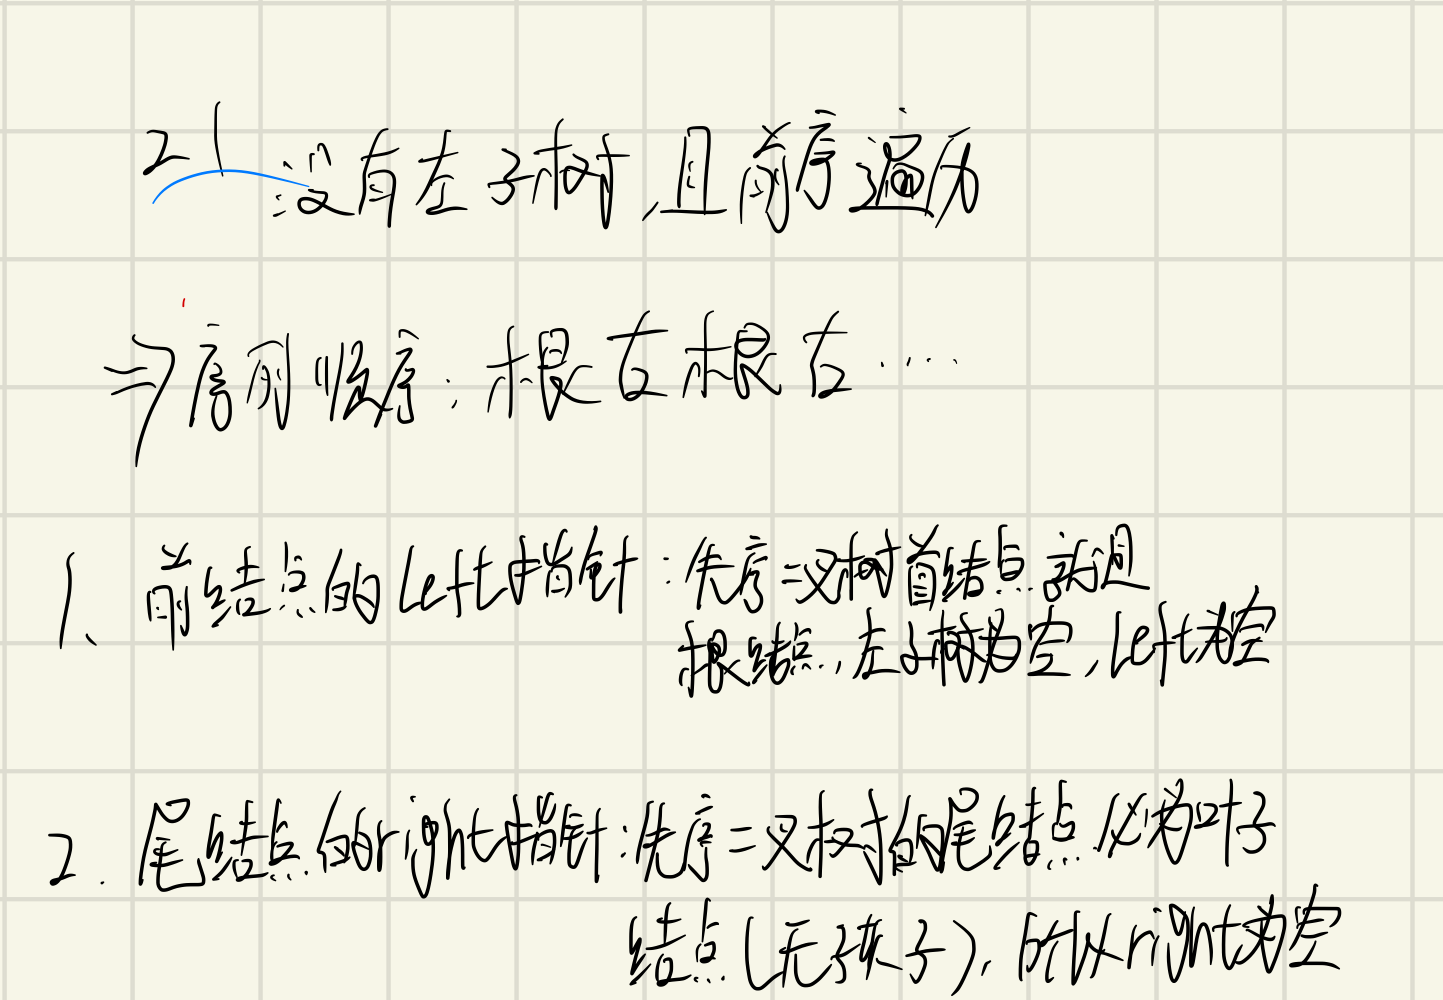 21 没有左子树,且前序遍历
⇒序列顺序:根右根右....
1、前结点的left指针:先序二叉树首结点就是
根结点,左子树为空,left为空
2.尾结点的right指针:先序二叉树的尾结点必为叶子
结点(无孩子),所以right为空